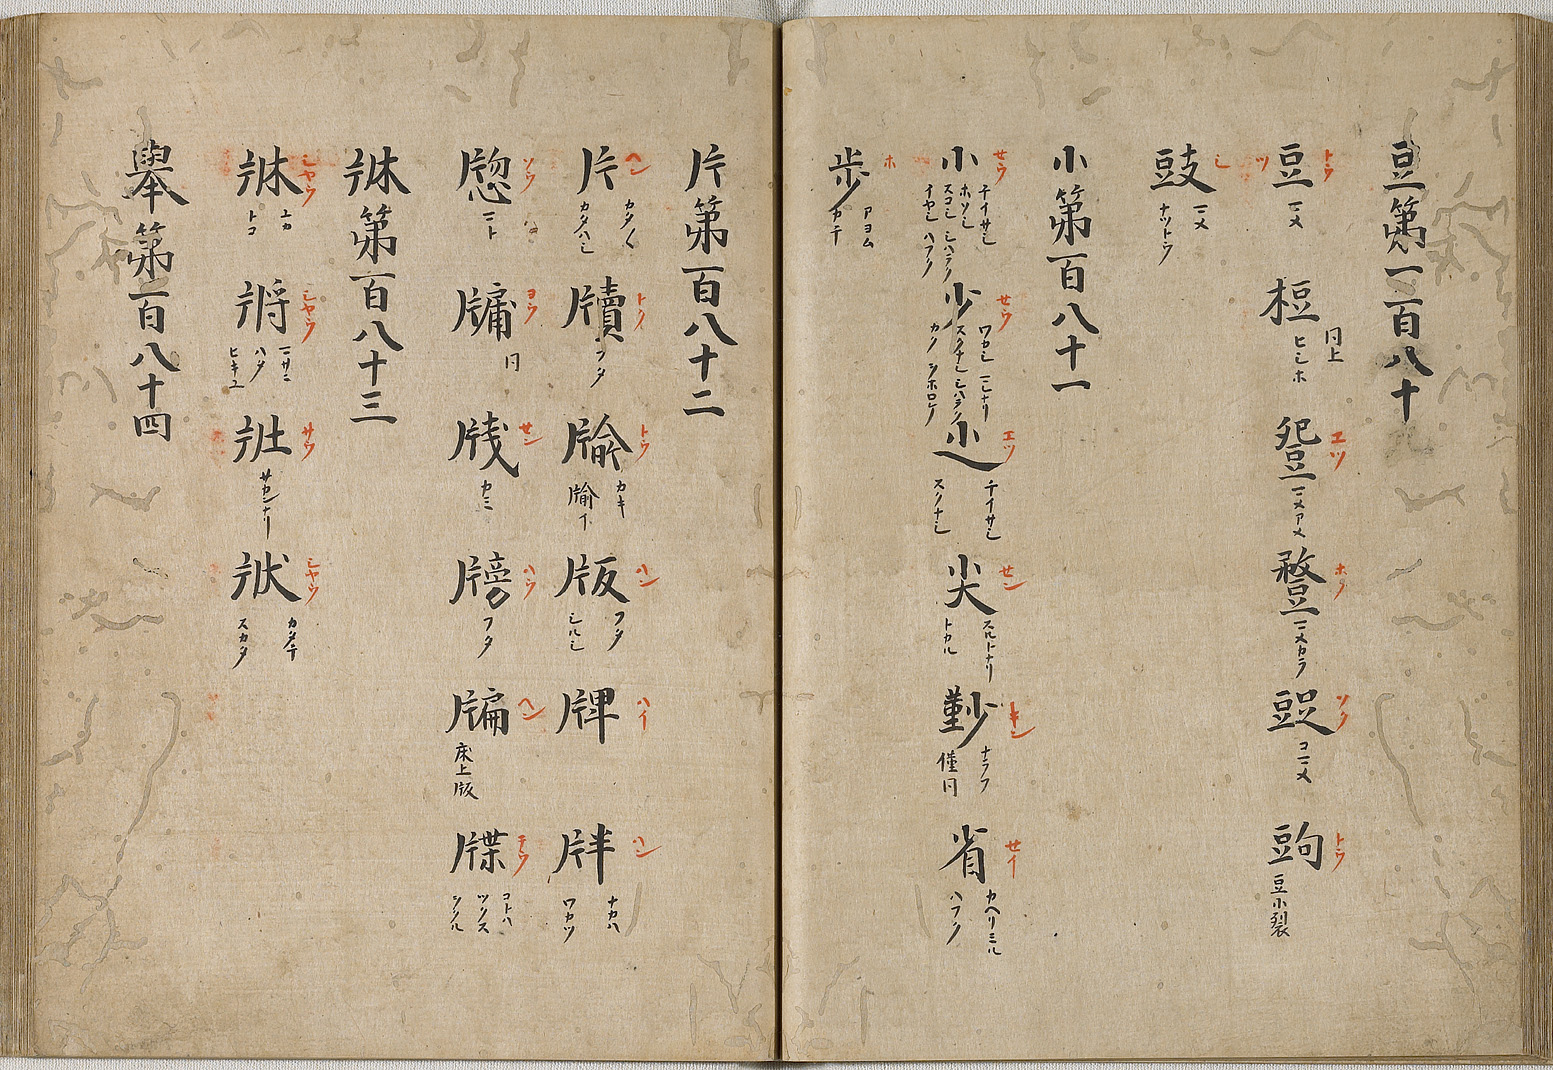 豆第一百八十
豆 トウ ツ マメ
梪 同上 ヒシホ
豌 エツ マメアメ
マメカラ
マメ ツク コマメ
トウ 豆小裂
豉 シ マメ ナットウ
小第百八十一
小 セウ チイサシ ホソシ スコシ シハラク イヤシ ハフク
少 せウ ワカシ スクナシ シハラク カク
エツ チイサシ スクナシ
尖 セン スルトナリ トカル
キン ナラフ 僅同
省 せイ カヘリミル ハフク
歩 ホ アヨム カチ
片第百八十二
片 ヘン カタ〱 カタハシ
牘 トク フタ
牏 トウ カキ
版 ハン フタ シルシ
牌 ハイ
牉 ハン ナカハ ワカツ
牎 ソウ マト
牗 ヨウ 同
牋 セン カミ
牓 ハウ フタ
牑 ヘン 床上版
牒 テウ コトハ ツクス
牀第百八十三
牀 シヤウ ユカ トコ
シヤウ マサニ ハタ ヒキユ
壯 サウ サカンナリ
狀 シヤウ カタチ スカタ
擧第百八十四